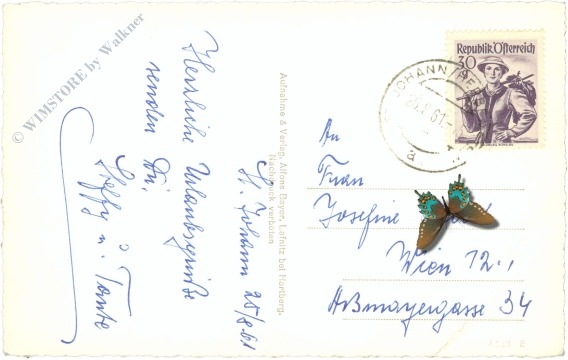 © WIMSTORE by Walkner
St. Johann 25/8.61
Herzliche Urlaubsgrüße
senden Dir,
Steffy u. Tante
Aufnahme & Verlag, Alfons Bayer, Lafnitz bei Hartberg.
Nachdruck verboten
Republik Österreich
30
JOHANN
.8.61
a
An
Frau
Josefine
Wien 12.,
Aßmayergasse 34